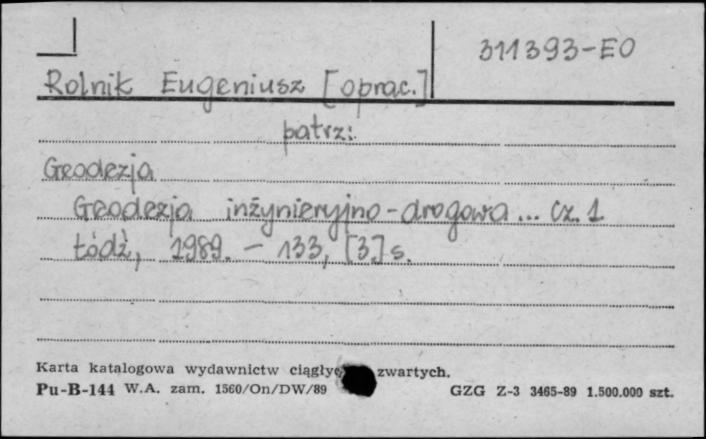 311393-EO
Rolnik Eugeniusz [oprac.]
patrz:
Geodezja
Geodezja inżynieryjno-drogowa... Cz. 1
Łódź, 1989. - 133, [3] s.
Karta katalogowa wydawnictw ciągłyc zwartych.
Pu-B-144 W.A. zam. 1560/On/DW/89 GZG Z-3 3465-89 1.500.000 szt.